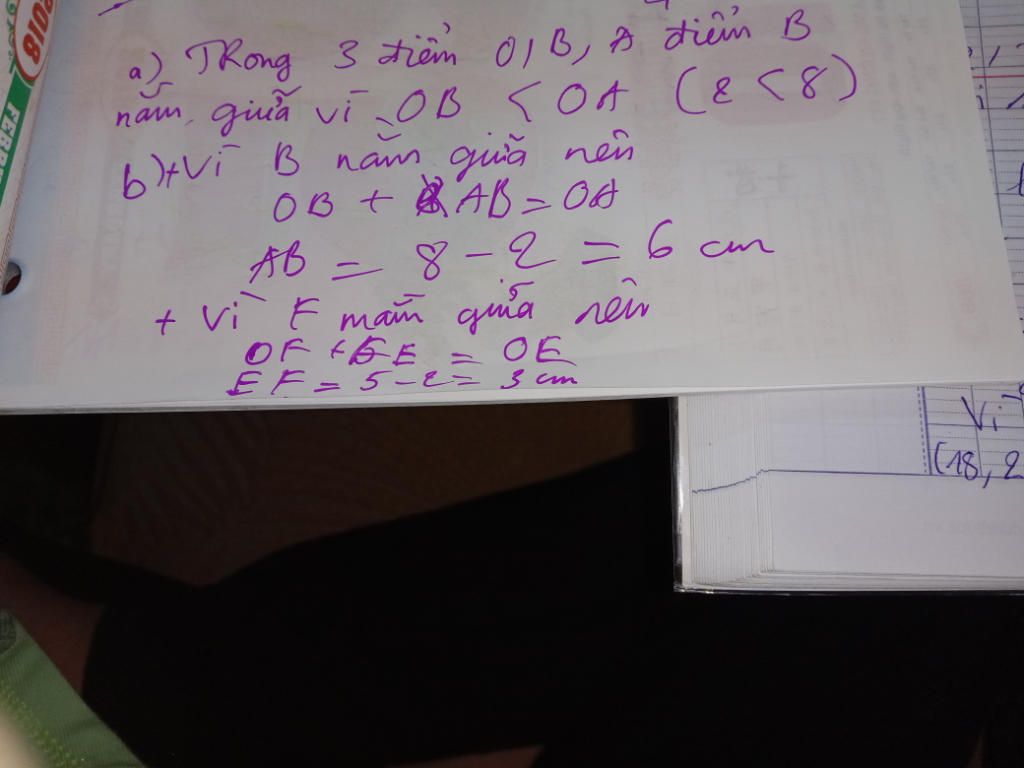 2018
FEBR
a) TRong 3 điểm O, B, A điểm B
nằm giữa vì OB < OA (2 < 8)
b) + Vì B nằm giữa nên
OB + AB = OA
AB = 8 - 2 = 6 cm
+ Vì F nằm giữa nên
OF + FE = OE
EF = 5 - 2 = 3 cm
Vì
(18, 2